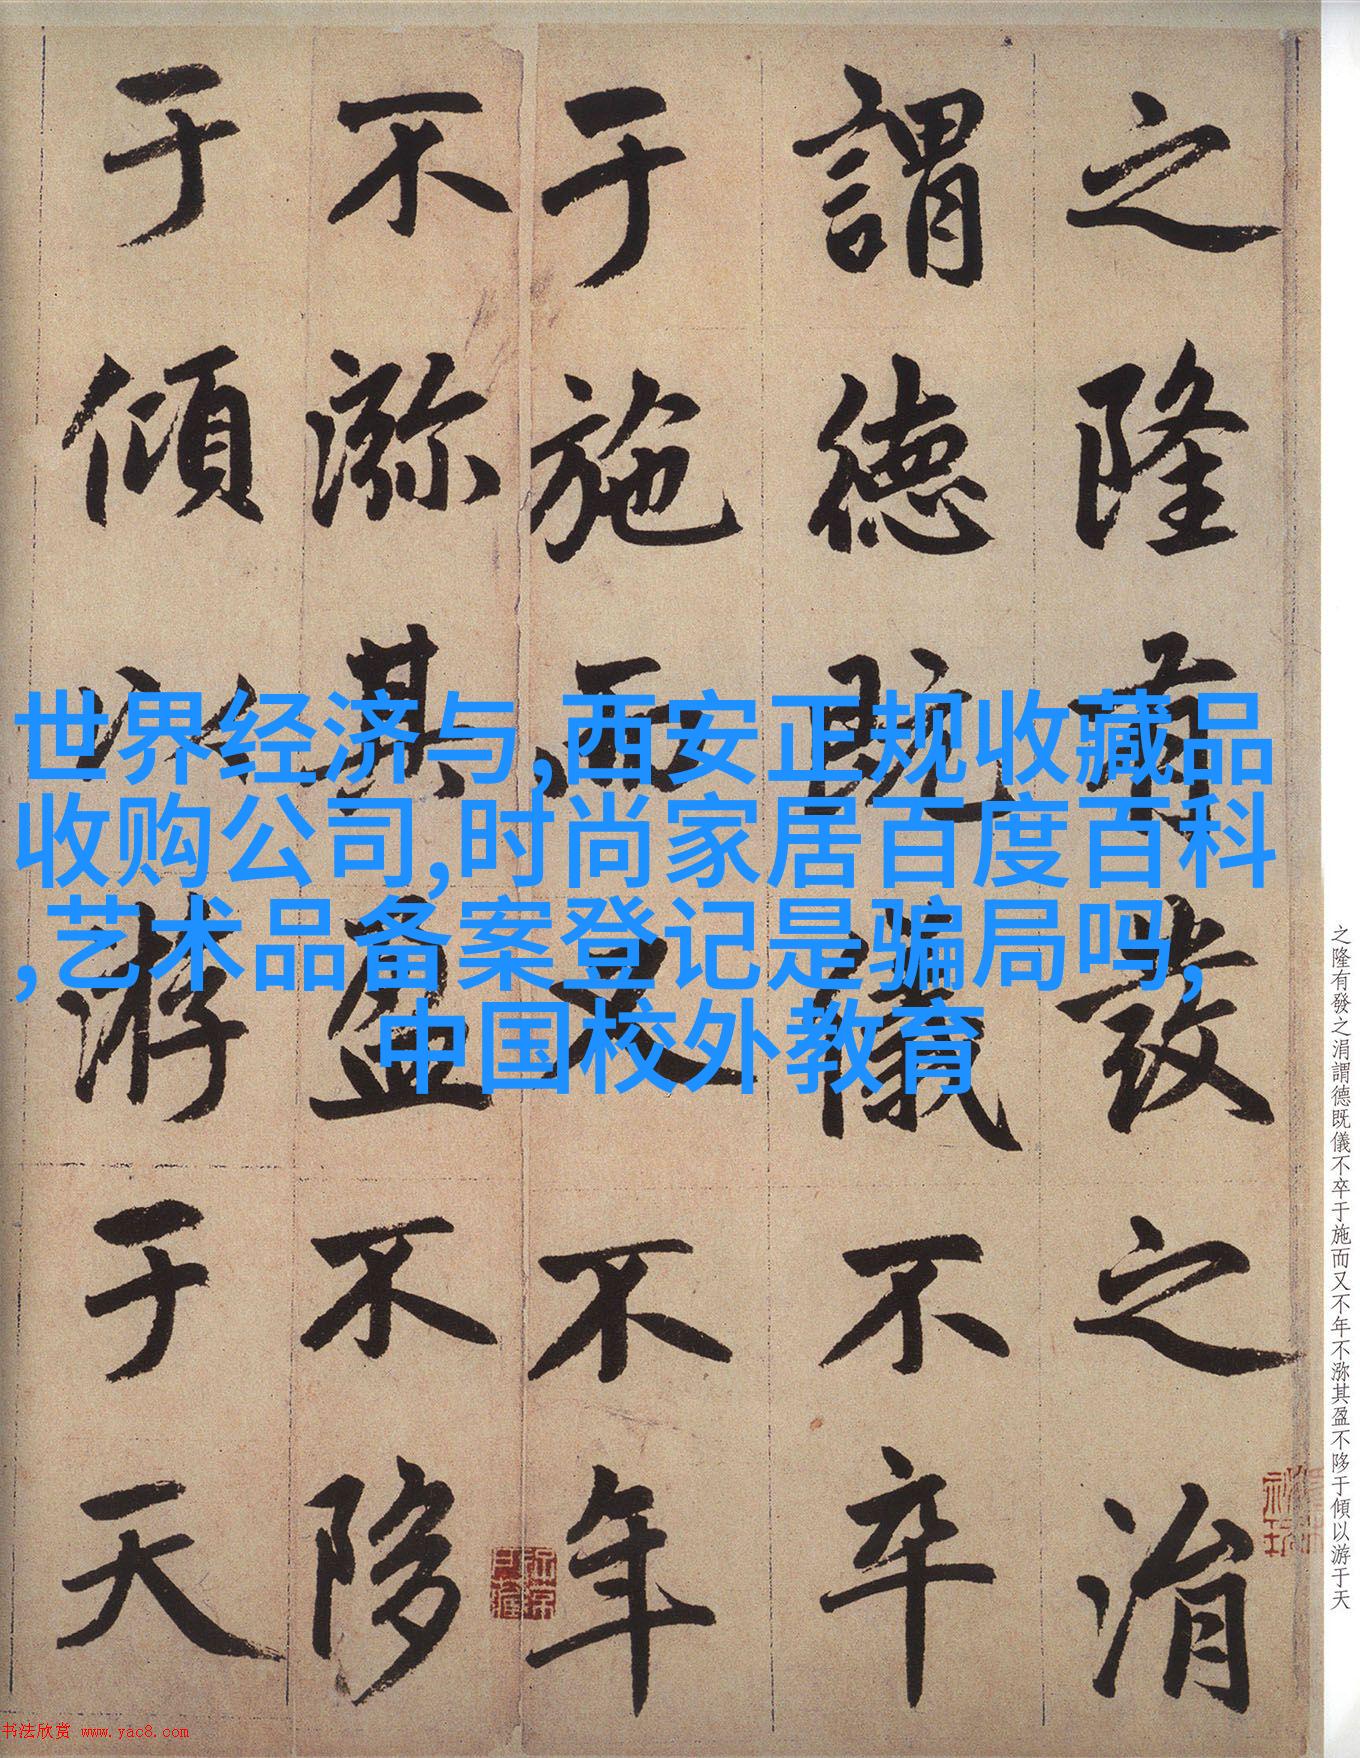 之隆有發之涓
謂德既儀不卒
于施而又不年
不㳽其盈不陊
于傾以游于天
世界经济与,西安正规收藏品
收购公司,时尚家居百度百科
,艺术品备案登记是骗局吗,
中国校外教育
之隆有發之涓謂德既儀不卒于施而又不年不㳽其盈不陊于傾以游于天
书法欣赏 www.yac8.com